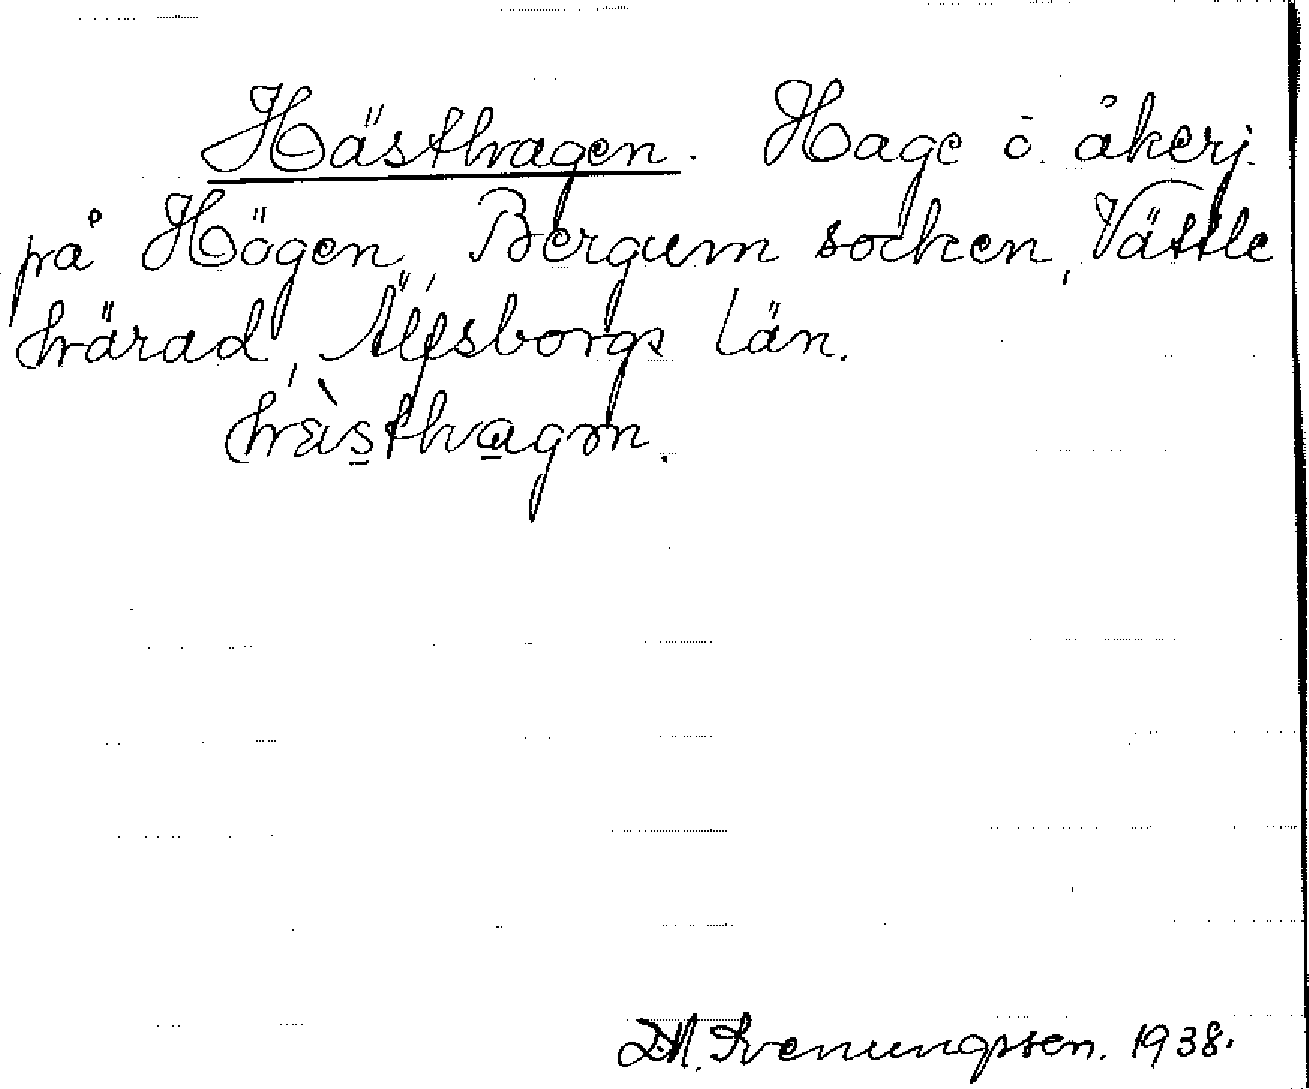 Hästhagen. Hage o. åkerj.
på Högen, Bergum socken, Vättle
härad, Älfsborgs län.
hàsthagən.
Svenungsson. 1938.